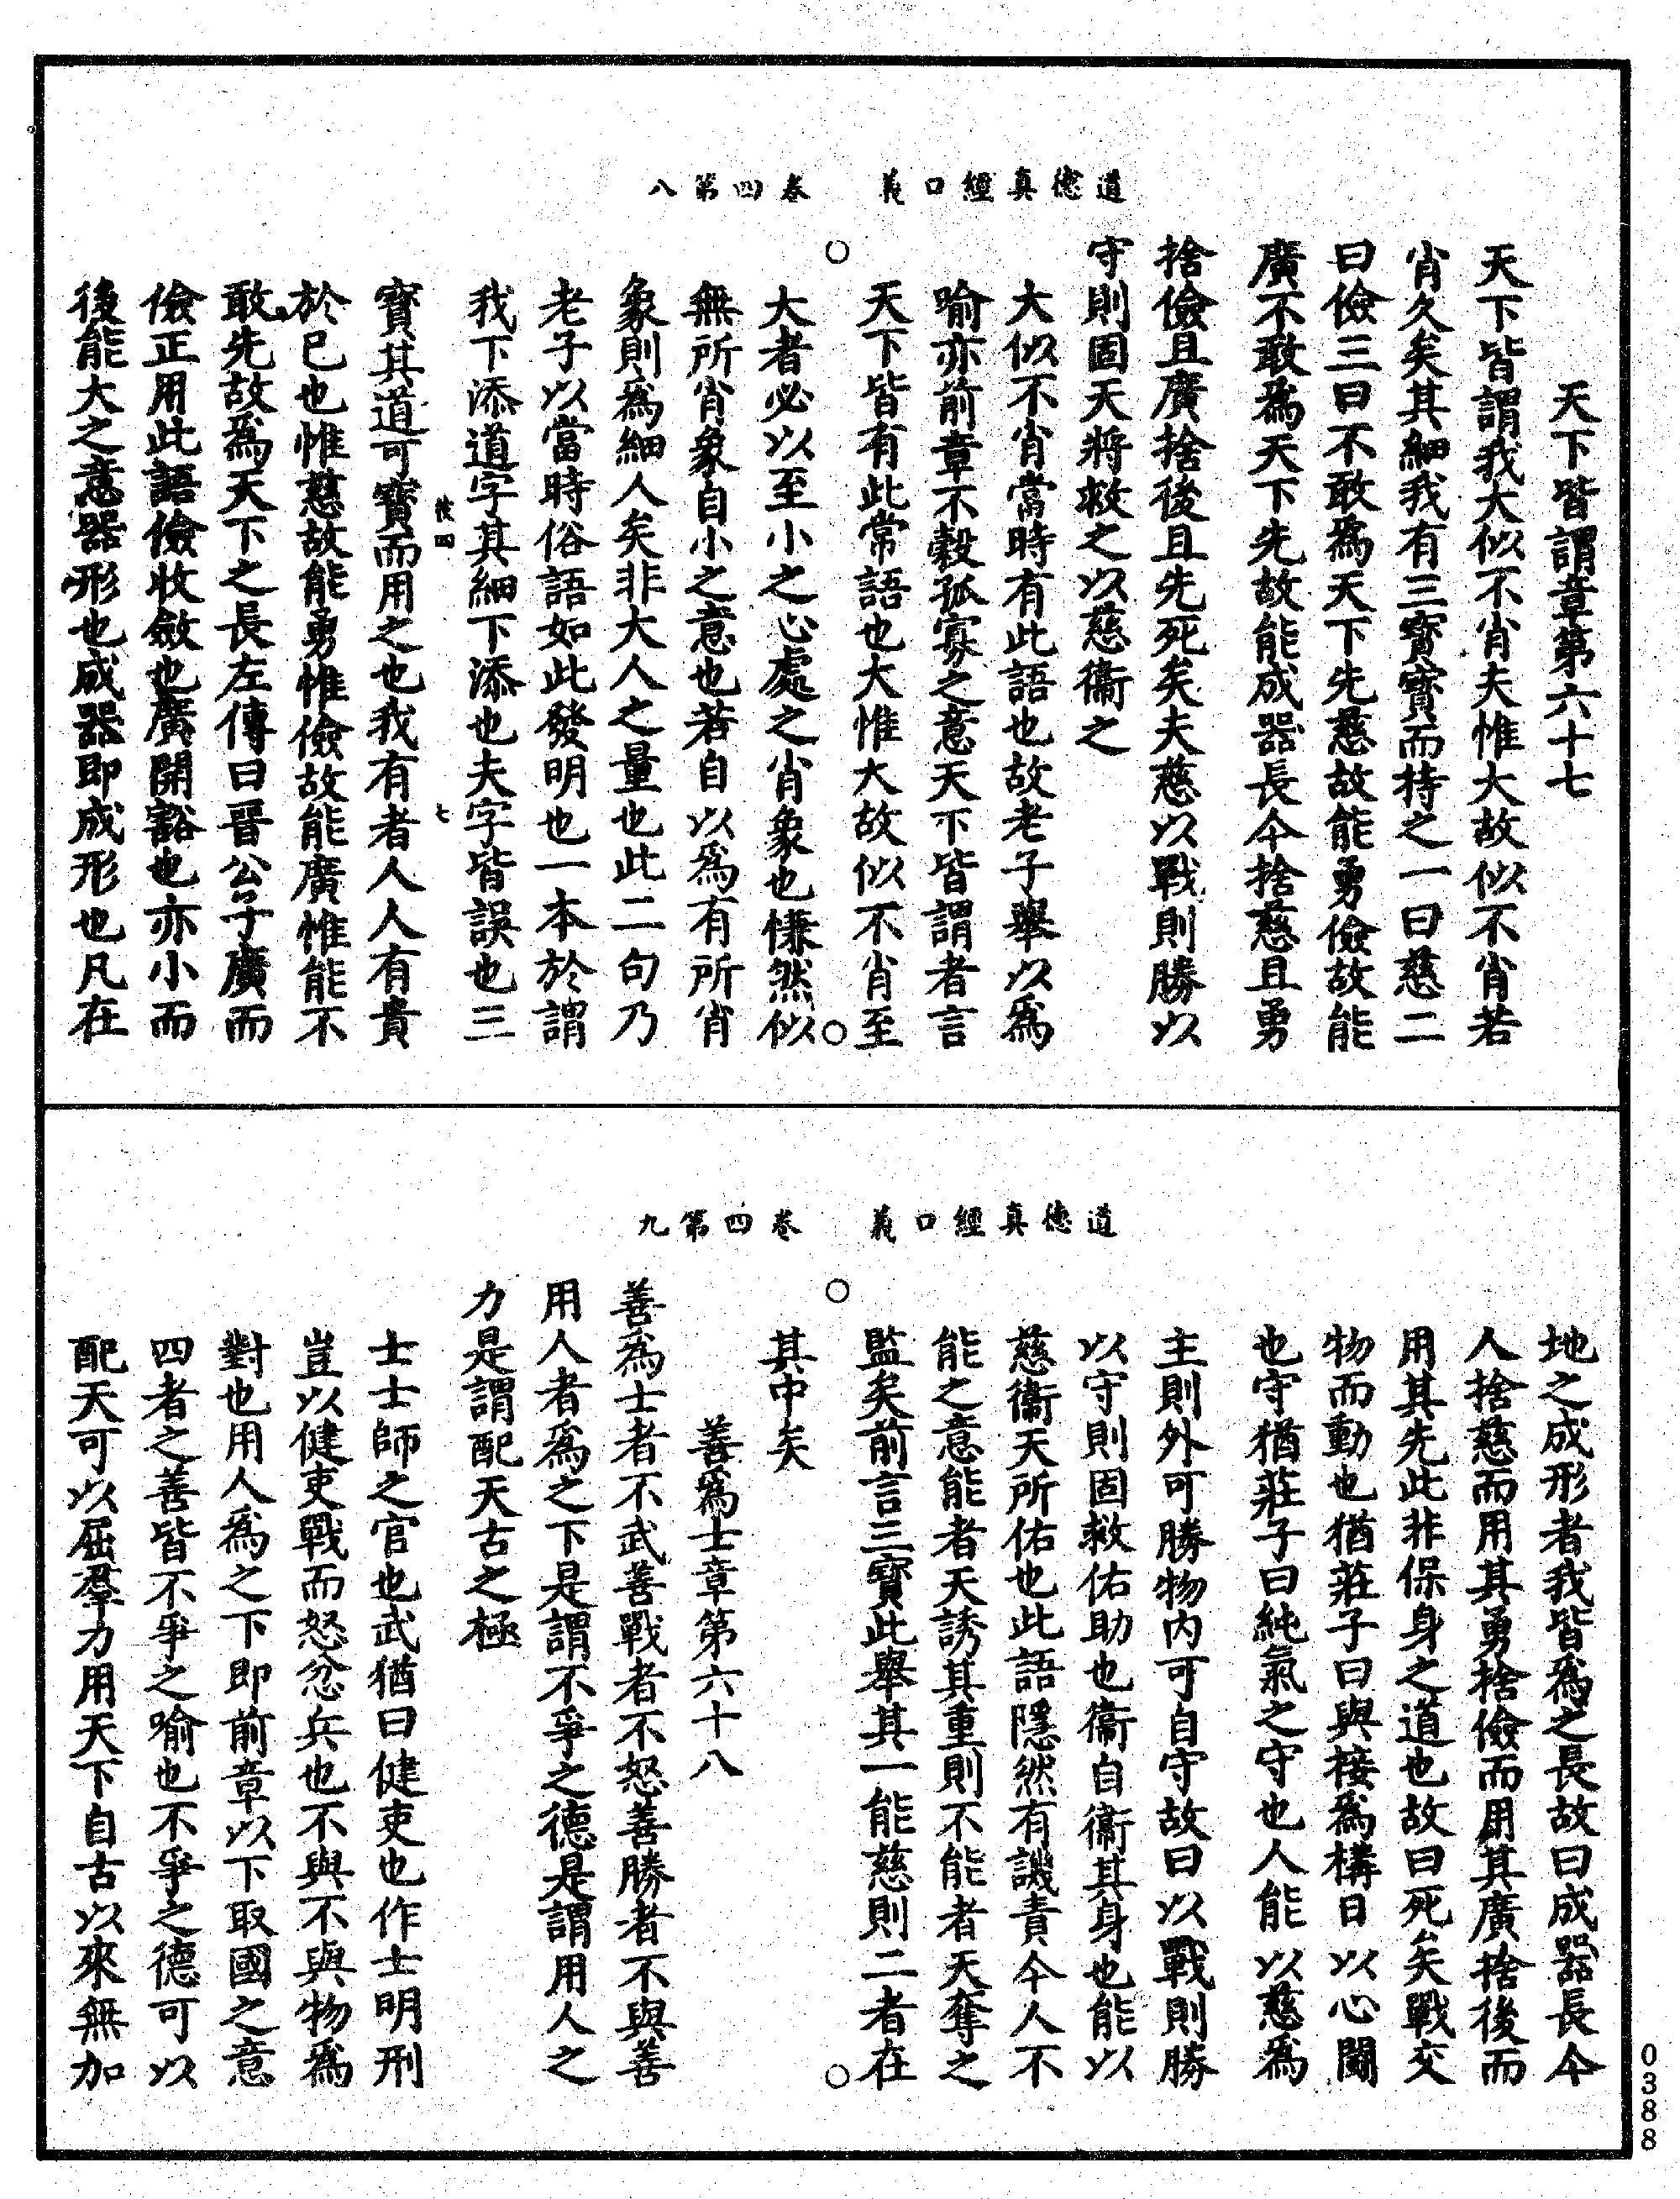 道德真經口義　卷四第八
天下皆謂章第六十七
天下皆謂我大似不肖夫惟大故似不肖若
肖久矣其細我有三寶寶而持之一曰慈二
曰儉三曰不敢爲天下先慈故能勇儉故能
廣不敢爲天下先故能成器長今捨慈且勇
捨儉且廣捨後且先死矣夫慈以戰則勝以
守則固天將救之以慈衞之
大似不肖當時有此語也故老子舉以爲
喻亦前章不穀孤寡之意天下皆謂者言
天下皆有此常語也大惟大故似不肖至
大者必以至小之心處之肖象也慊然似
無所肖象自小之意也若自以爲有所肖
象則爲細人矣非大人之量也此二句乃
老子以當時俗語如此發明也一本於謂
我下添道字其細下添也夫字皆誤也三
七
寶其道可寶而用之也我有者人人有貴
於已也惟慈故能勇惟儉故能廣惟能不
敢先故爲天下之長左傳曰晉公子廣而
儉正用此語儉收斂也廣開豁也亦小而
後能大之意器形也成器即成形也凡在
道德真經口義　卷四第九
地之成形者我皆爲之長故曰成器長今
人捨慈而用其勇捨儉而用其廣捨後而
用其先此非保身之道也故曰死矣戰交
物而動也猶莊子曰與接爲構日以心鬭
也守猶莊子曰純氣之守也人能以慈爲
主則外可勝物内可自守故曰以戰則勝
以守則固救佑助也衞自衞其身也能以
慈衞天所佑也此語隱然有譏責今人不
能之意能者天誘其重則不能者天奪之
監矣前言三寶此舉其一能慈則二者在
其中矣
善爲士章第六十八
善爲士者不武善戰者不怒善勝者不與善
用人者爲之下是謂不爭之德是謂用人之
力是謂配天古之極
士士師之官也武猶曰健吏也作士明刑
豈以健吏戰而怒忿兵也不與不與物爲
對也用人爲之下即前章以下取國之意
四者之善皆不爭之喻也不爭之德可以
配天可以屈羣力用天下自古以來無加
0388